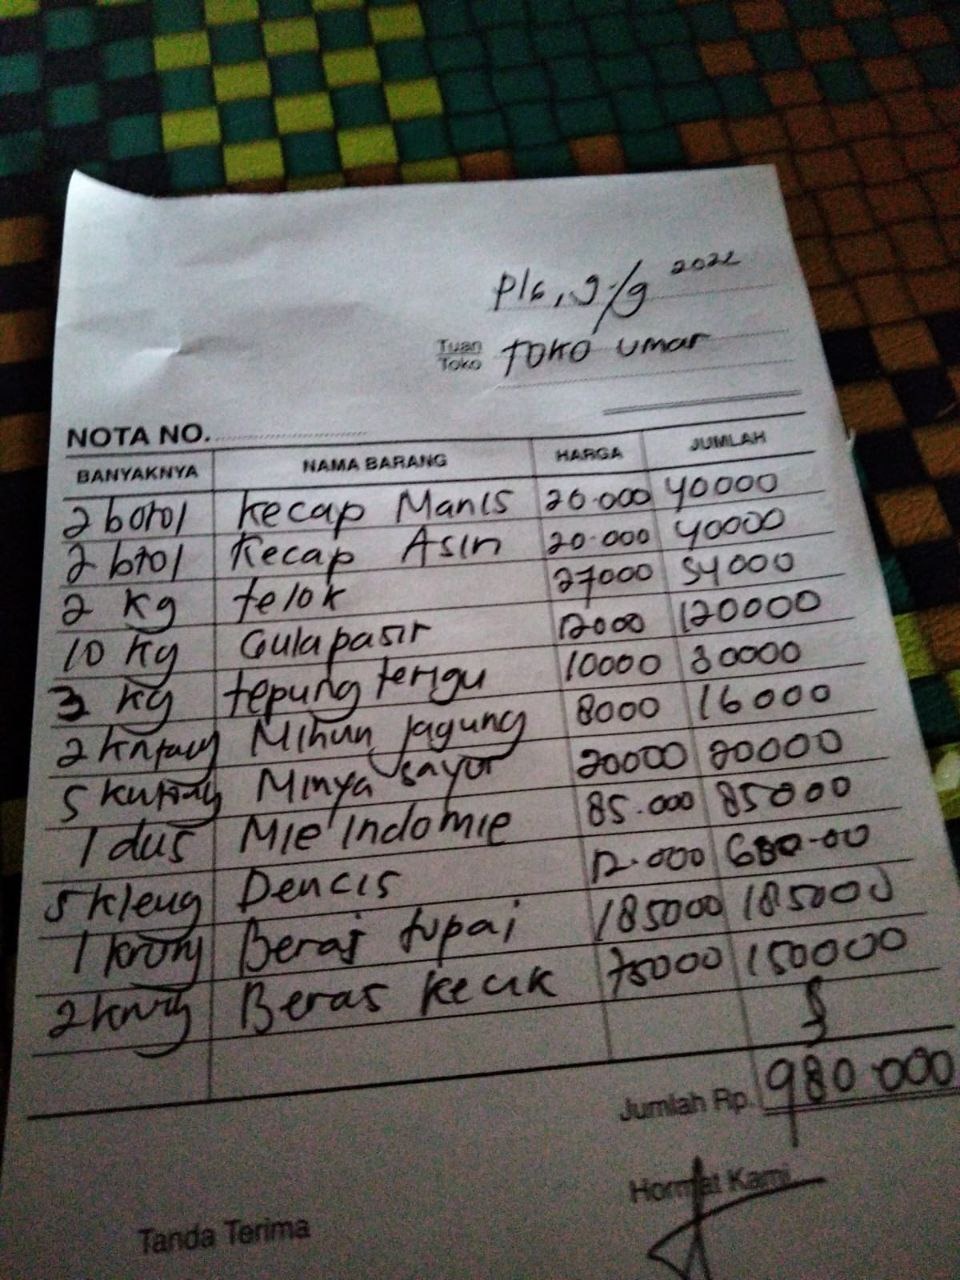 Plg, 9/9 2022
Tuan
Toko TOKO Umar
NOTA NO.
BANYAKNYA NAMA BARANG HARGA JUMLAH
2 botol Kecap Manis 20.000 40000
2 btol Kecap Asin 20.000 40000
2 Kg telok 27000 54000
10 Kg Gula pasir 12000 120000
3 Kg tepung terigu 10000 30000
2 Mihun jagung 8000 16000
5 Minya sayor 20000 20000
1 dus Mie Indomie 85.000 85000
5 kleng Dencis 12.000
1 Beras tupai 185000 185000
2 Beras kecik 75000 150000
Jumlah Rp. 980.000
Hormat Kami
Tanda Terima